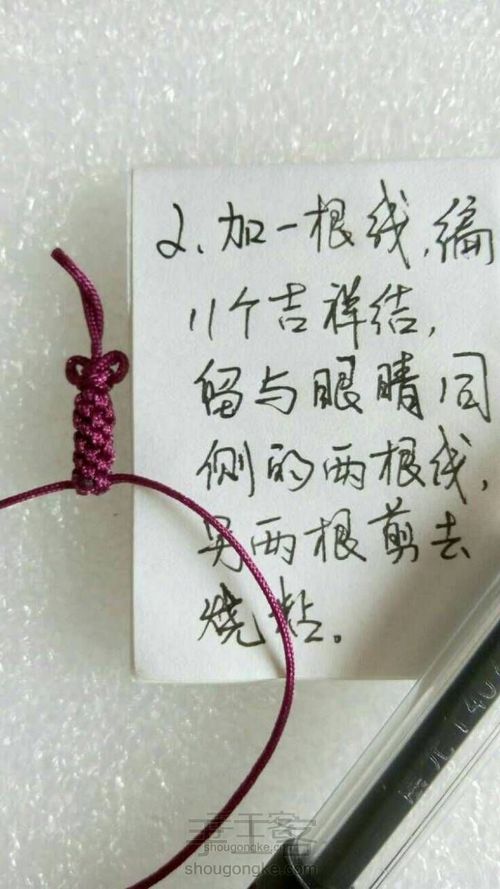 2、加一根线,编
11个吉祥结,
留与眼睛同
侧的两根线,
另两根剪去
烧粘。
手工客
shougongke.com
shougongke.com